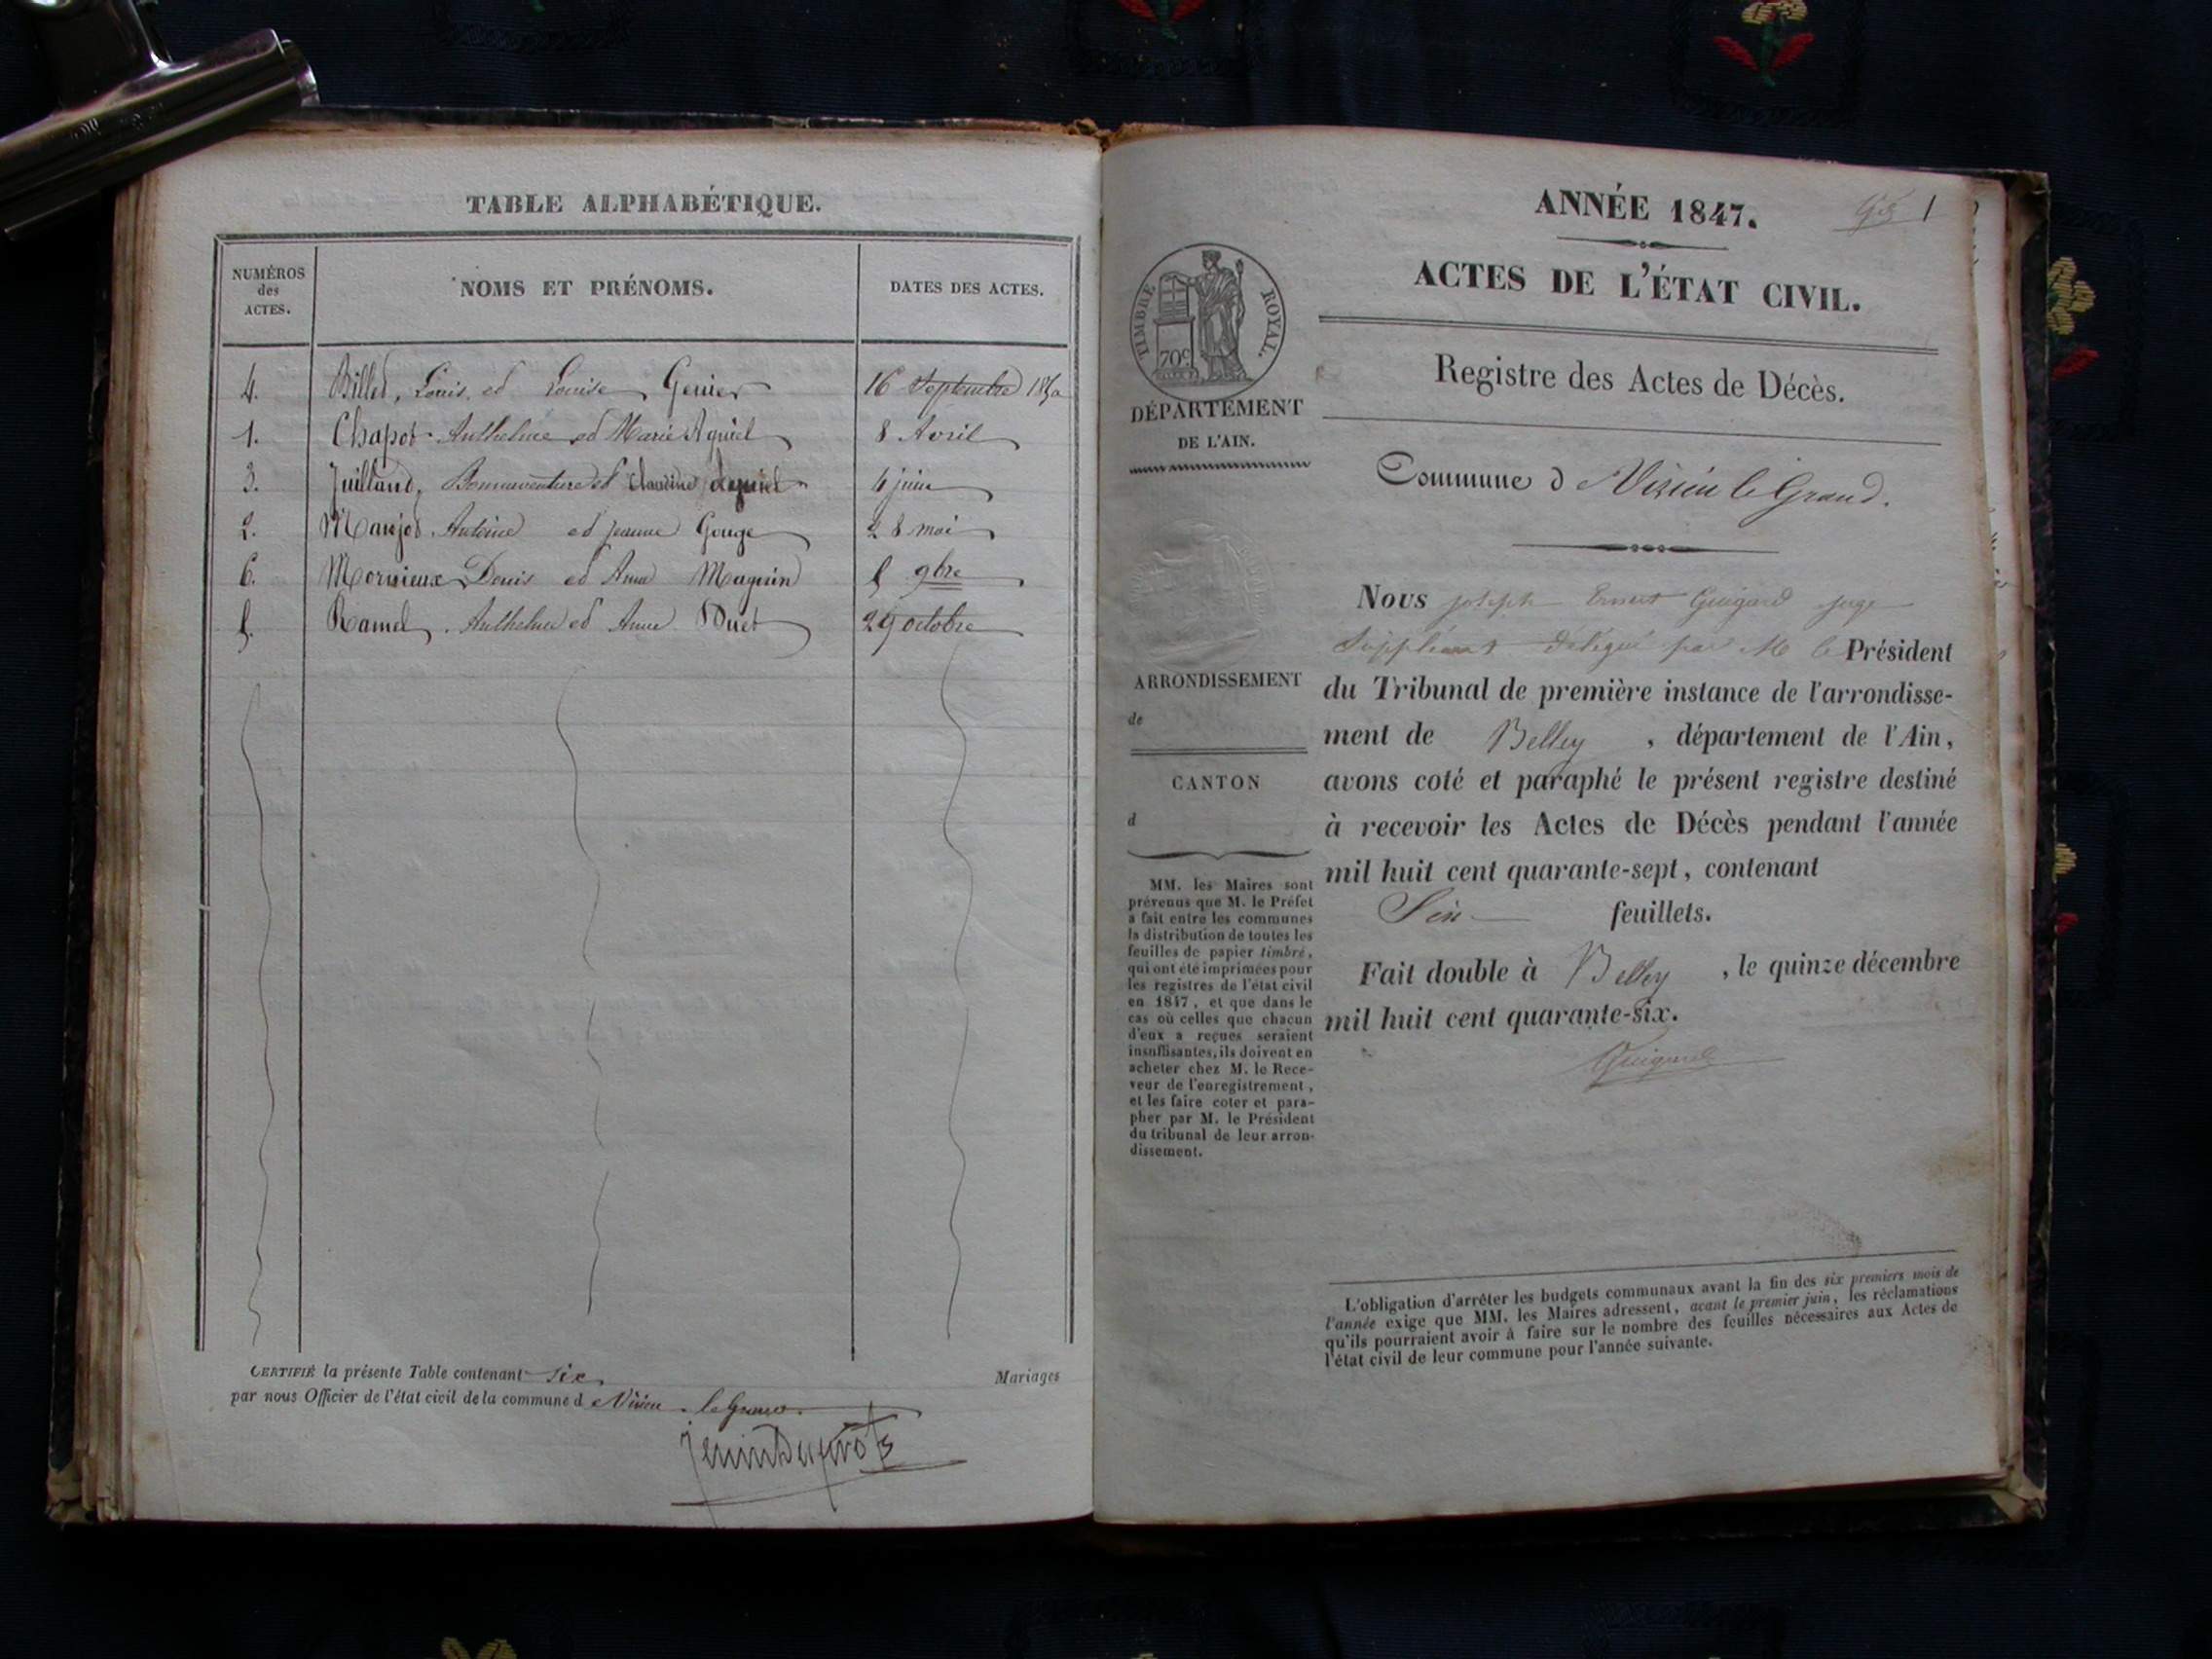 TABLE ALPHABÉTIQUE.
NUMÉROS
des
ACTES.
NOMS ET PRÉNOMS.
DATES DES ACTES.
4. Billed, Louis, et Louise Genier 16 Septembre
1. Chapot Anthelme et Marie Aguiel 8 Avril
3. Juilland, Bonnaventure et Claudine 4 juin
2. Antoine et jeanne Gouge 28 mai
6. Mornieux Denis et Anne Magnin 5 9bre
5. Ramel, Anthelme et Anne 29 octobre
CERTIFIÉ la présente Table contenant six Mariages
par nous Officier de l'état civil de la commune d e Virieu le Grand.
ANNÉE 1847.
1
ACTES DE L'ÉTAT CIVIL.
TIMBRE ROYAL.
70c
Registre des Actes de Décès.
DÉPARTEMENT
DE L'AIN.
Commune d e Virieu le Grand.
Nous joseph Ernest Guigard juge
Suppléant délégué par M le Président
du Tribunal de première instance de l'arrondisse-
ment de Belley , département de l'Ain,
avons coté et paraphé le présent registre destiné
à recevoir les Actes de Décès pendant l'année
mil huit cent quarante-sept, contenant
feuillets.
Fait double à Belley , le quinze décembre
mil huit cent quarante-six.
Guigard
ARRONDISSEMENT
de
CANTON
d
MM. les Maires sont
prévenus que M. le Préfet
a fait entre les communes
la distribution de toutes les
feuilles de papier timbré,
qui ont été imprimées pour
les registres de l'état civil
en 1847, et que dans le
cas où celles que chacun
d'eux a reçues seraient
insuffisantes, ils doivent en
acheter chez M. le Rece-
veur de l'enregistrement,
et les faire coter et para-
pher par M. le Président
du tribunal de leur arron-
dissement.
L'obligation d'arrêter les budgets communaux avant la fin des six premiers mois de
l'année exige que MM. les Maires adressent, avant le premier juin, les réclamations
qu'ils pourraient avoir à faire sur le nombre des feuilles nécessaires aux Actes de
l'état civil de leur commune pour l'année suivante.